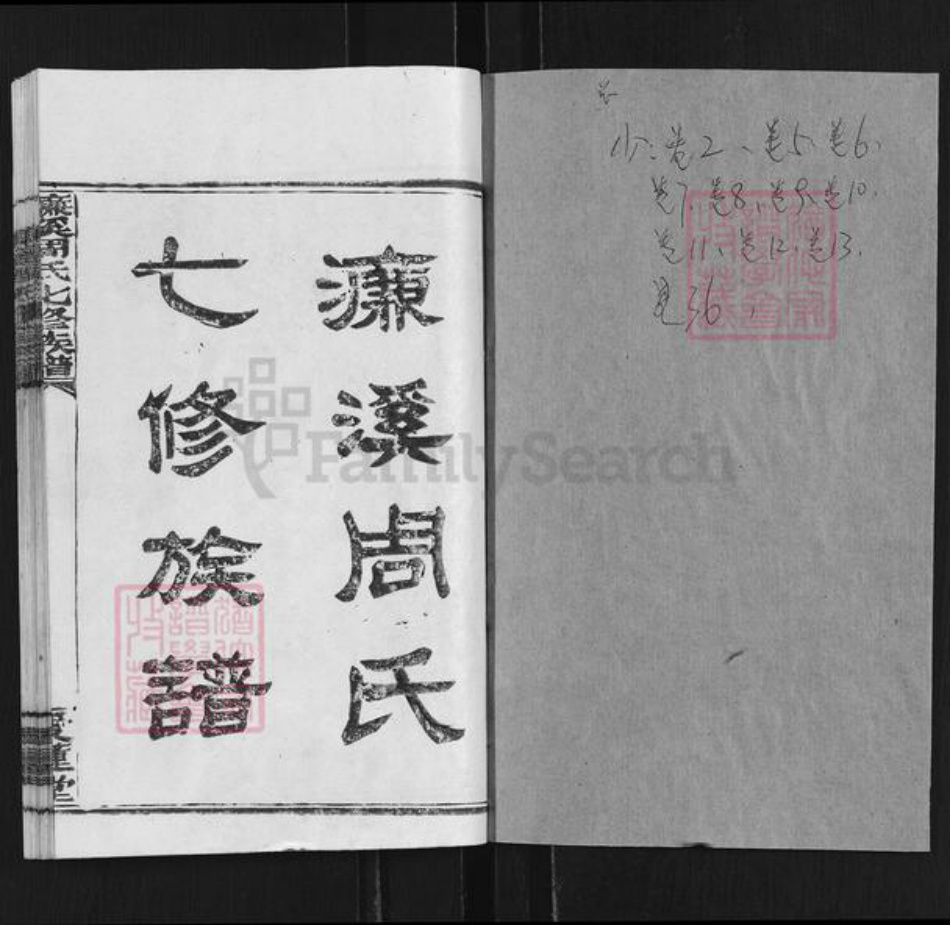 少:卷2、卷5、卷6、
卷7、卷8、卷9、卷10、
卷11、卷12、卷13、
卷36、
濂溪周氏
七修族譜
濂溪周氏七修族譜
愛蓮堂
FamilySearch